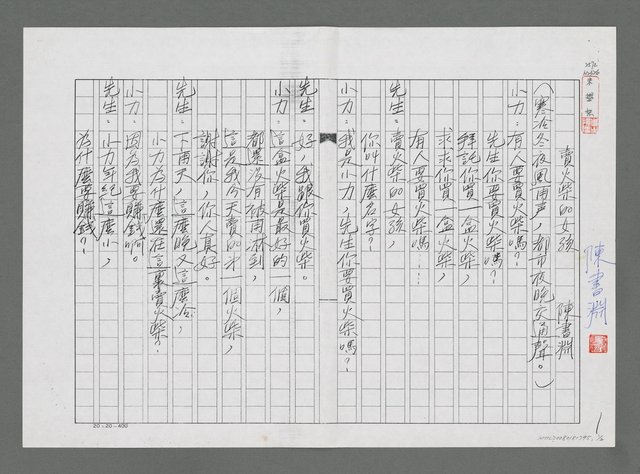 賣火柴的女孩
陳書淵
（寒冷冬夜風雨声，都市夜晚交通聲。）
小力：有人要買火柴嗎？
先生你要買火柴嗎？
拜託你買一盒火柴，
求求你買一盒火柴，
有人要買火柴嗎……
先生：賣火柴的女孩，
你叫什麼名字？
小力：我是小力，先生你要買火柴嗎？
先生：好，我跟你買火柴。
小力：這盒火柴是最好的一個，
都還沒有被雨淋到，
這是我今天賣的才一個火柴，
謝謝你，你人真好。
先生：下雨天，這麼晚又這麼冷，
小力為什麼還在這裏賣火柴？
小力：因為我要賺錢啊。
先生：小力年紀這麼小，
為什麼要賺錢？
陳書淵
20×20=400
1